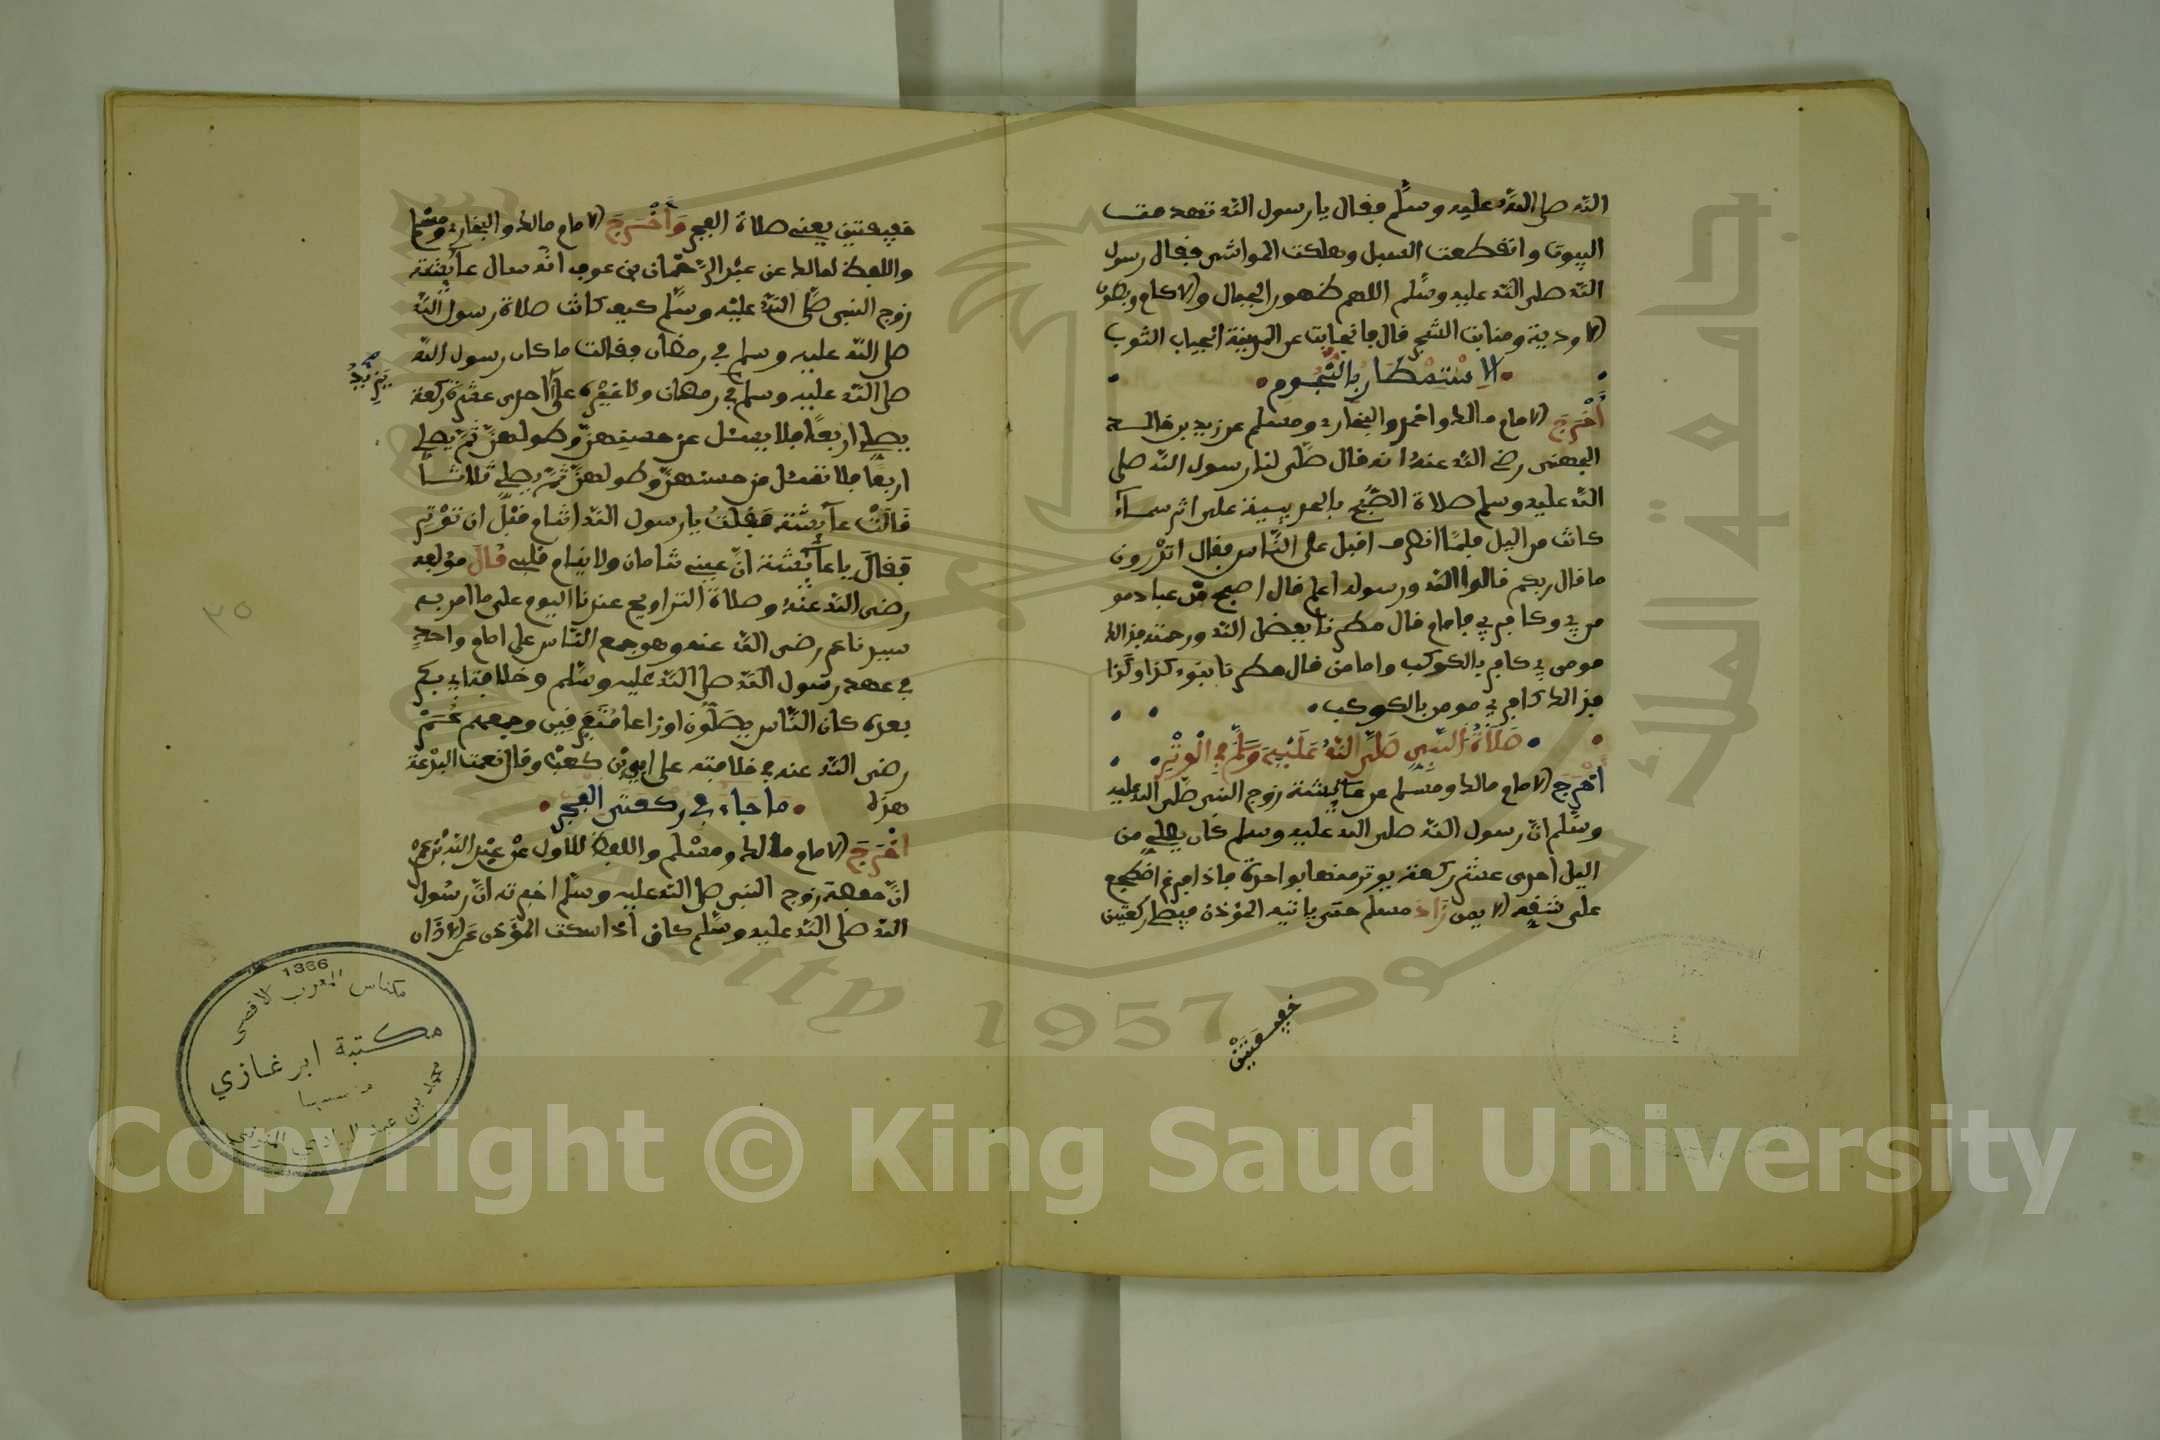 الله صلى الله عليه وسلم فقال يا رسول الله تهدمت
البيوت وانقطعت السبل وهلكت المواشي فقال رسول
الله صلى الله عليه وسلم اللهم ظهور الجبال والاكام وبطون
الاودية ومنابت الشجر قال فانجابت عن المدينة انجياب الثوب
الاستمطار بالنجوم
أخرج الامام مالك واحمد والبخاري ومسلم عن زيد بن خالد
الجهني رضي الله عنه انه قال صلى لنا رسول الله صلى
الله عليه وسلم صلاة الصبح بالحديبية على اثر سماء
كانت من اليل فلما انصرف اقبل على الناس فقال اتدرون
ما قال ربكم قالوا الله ورسوله اعلم قال اصبح من عباد مو
من بي وكافر بي فاما من قال مطرنا بفضل الله ورحمته فذالك
مومن بي كافر بالكوكب واما من قال مطرنا بنوء كذا وكذا
فذالك كافر بي مومن بالكوكب
صلاة النبي صلى الله عليه وسلم في الوتر
أخرج الامام مالك ومسلم عن عائشة زوج النبي صلى الله عليه
وسلم ان رسول الله صلى الله عليه وسلم كان يصلي من
اليل احدى عشر ركعة يوتر منها بواحدة فاذا فرغ اضطجع
على شقه الايمن زاد مسلم حتى ياتيه المؤذن فيصلي ركعتين
خفيفتين
خفيفتين يعني صلاة الفجر وأخرج الامام مالك والبخاري ومسلم
واللفظ لمالك عن عبد الرحمان بن عوف انه سال عائشة
زوج النبي صلى الله عليه وسلم كيف كانت صلاة رسول الله
صلى الله عليه وسلم في رمضان فقالت ما كان رسول الله
يزيد
صلى الله عليه وسلم في رمضان ولا غيره على احدى عشرة ركعة
يصلي اربعا فلا تسئل عن حسنهن وطولهن ثم يصلي
اربعا فلا تسئل عن حسنهن وطولهن ثم يصلي ثلاثا
قالت عائشة فقلت يا رسول الله اتنام قبل ان توتر
فقال يا عائشة ان عيني تنامان ولا ينام قلبي قال مؤلفه
رضي الله عنه وصلاة التراويح عندنا اليوم على ما امر به
سيدنا عمر رضي الله عنه وهو جمع الناس على امام واحد
في عهد رسول الله صلى الله عليه وسلم وخلافة ابي بكر
بعده كان الناس يصلون اوزاعا متفرقين وجمعهم عمر
رضي الله عنه في خلافته على ابي بن كعب وقال نعمت البدعة
هذه
ما جاء في ركعتي الفجر
أخرج الامام مالك ومسلم واللفظ للاول عن عبد الله بن عمر
ان حفصة زوج النبي صلى الله عليه وسلم اخبرته ان رسول
الله صلى الله عليه وسلم كان اذا سكت المؤذن عن الاذان
٣٥
1366
مكناس المغرب الاقصى
مكتبة ابن غازي
محمد بن عبد الهادي
جامعة الملك سعود
1957
Copyright © King Saud University